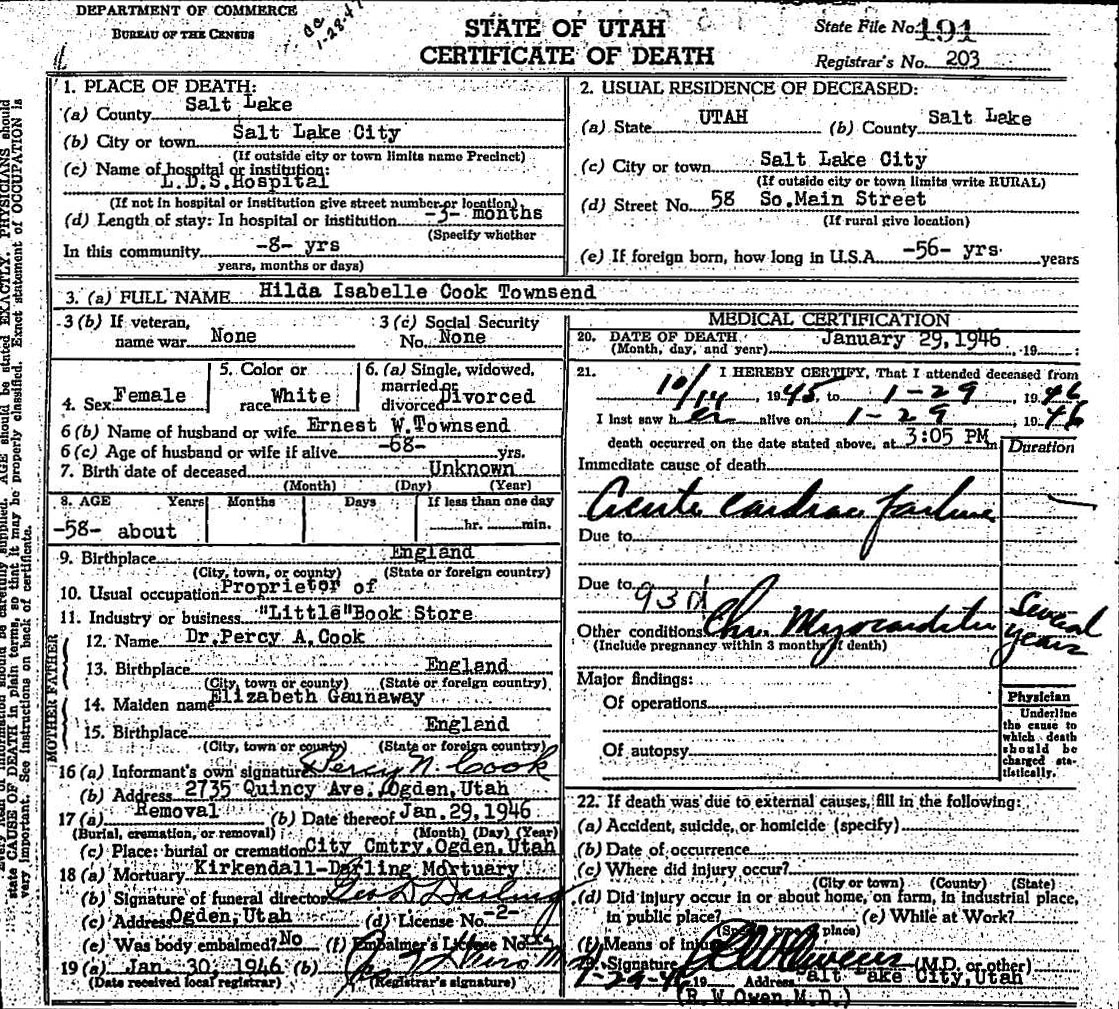 DEPARTMENT OF COMMERCE
BUREAU OF THE CENSUS
1-28-47
STATE OF UTAH
CERTIFICATE OF DEATH
State File No. 191
Registrar's No. 203
1. PLACE OF DEATH:
(a) County Salt Lake
(b) City or town Salt Lake City
(If outside city or town limits name Precinct)
(c) Name of hospital or institution:
L.D.S.Hospital
(If not in hospital or institution give street number or location)
(d) Length of stay: In hospital or institution -3- months
(Specify whether
In this community -8- yrs
years, months or days)
2. USUAL RESIDENCE OF DECEASED:
(a) State UTAH (b) County Salt Lake
(c) City or town Salt Lake City
(If outside city or town limits write RURAL)
(d) Street No. 58 So.Main Street
(If rural give location)
(e) If foreign born, how long in U.S.A. -56- yrs. years
3. (a) FULL NAME Hilda Isabelle Cook Townsend
3 (b) If veteran, name war None
3 (c) Social Security No. None
4. Sex Female
5. Color or race White
6. (a) Single, widowed, married or divorced Divorced
6 (b) Name of husband or wife Ernest W.Townsend
6 (c) Age of husband or wife if alive -68- yrs.
7. Birth date of deceased Unknown
(Month) (Day) (Year)
8. AGE Years Months Days If less than one day
-58- about hr. min.
9. Birthplace England
(City, town, or county) (State or foreign country)
10. Usual occupation Proprietor of
11. Industry or business "Little"Book Store
FATHER
12. Name Dr.Percy A.Cook
13. Birthplace England
(City, town or county) (State or foreign country)
MOTHER
14. Maiden name Elizabeth Gaunaway
15. Birthplace England
(City, town or county) (State or foreign country)
16 (a) Informant's own signature Percy N. Cook
(b) Address 2735 Quincy Ave. Ogden,Utah
17 (a) Removal (b) Date thereof Jan.29,1946
(Burial, cremation, or removal) (Month) (Day) (Year)
(c) Place: burial or cremation City Cmtry.Ogden,Utah
18 (a) Mortuary Kirkendall-Darling Mortuary
(b) Signature of funeral director Geo D Darling
(c) Address Ogden,Utah (d) License No. -2-
(e) Was body embalmed? No (f) Embalmer's License No. xx
19 (a) Jan. 30, 1946 (b)
(Date received local registrar) (Registrar's signature)
MEDICAL CERTIFICATION
20. DATE OF DEATH
(Month, day, and year) January 29,1946 19
21. I HEREBY CERTIFY, That I attended deceased from
10/14 1945, to 1-29, 1946
I last saw h er alive on 1-29 1946
death occurred on the date stated above, at 3:05 PM m
Duration
Immediate cause of death
Acute cardiac failure
Due to
Due to 93d
Other conditions Chr. Myocarditis Several years
(Include pregnancy within 3 months of death)
Major findings:
Of operations
Of autopsy
Physician
Underline the cause to which death should be charged statistically.
22. If death was due to external causes, fill in the following:
(a) Accident, suicide, or homicide (specify)
(b) Date of occurrence
(c) Where did injury occur?
(City or town) (County) (State)
(d) Did injury occur in or about home, on farm, in industrial place,
in public place? (e) While at Work?
(Specify type of place)
(f) Means of injury
Signature R W Owens (M.D. or other)
1-29-46 19 Address Salt Lake City,Utah
(R.W.Owen,M.D.)
AGE should be stated EXACTLY. PHYSICIANS should
state CAUSE OF DEATH in plain terms, so that it may be properly classified. Exact statement of OCCUPATION is
very important. See instructions on back of certificate.